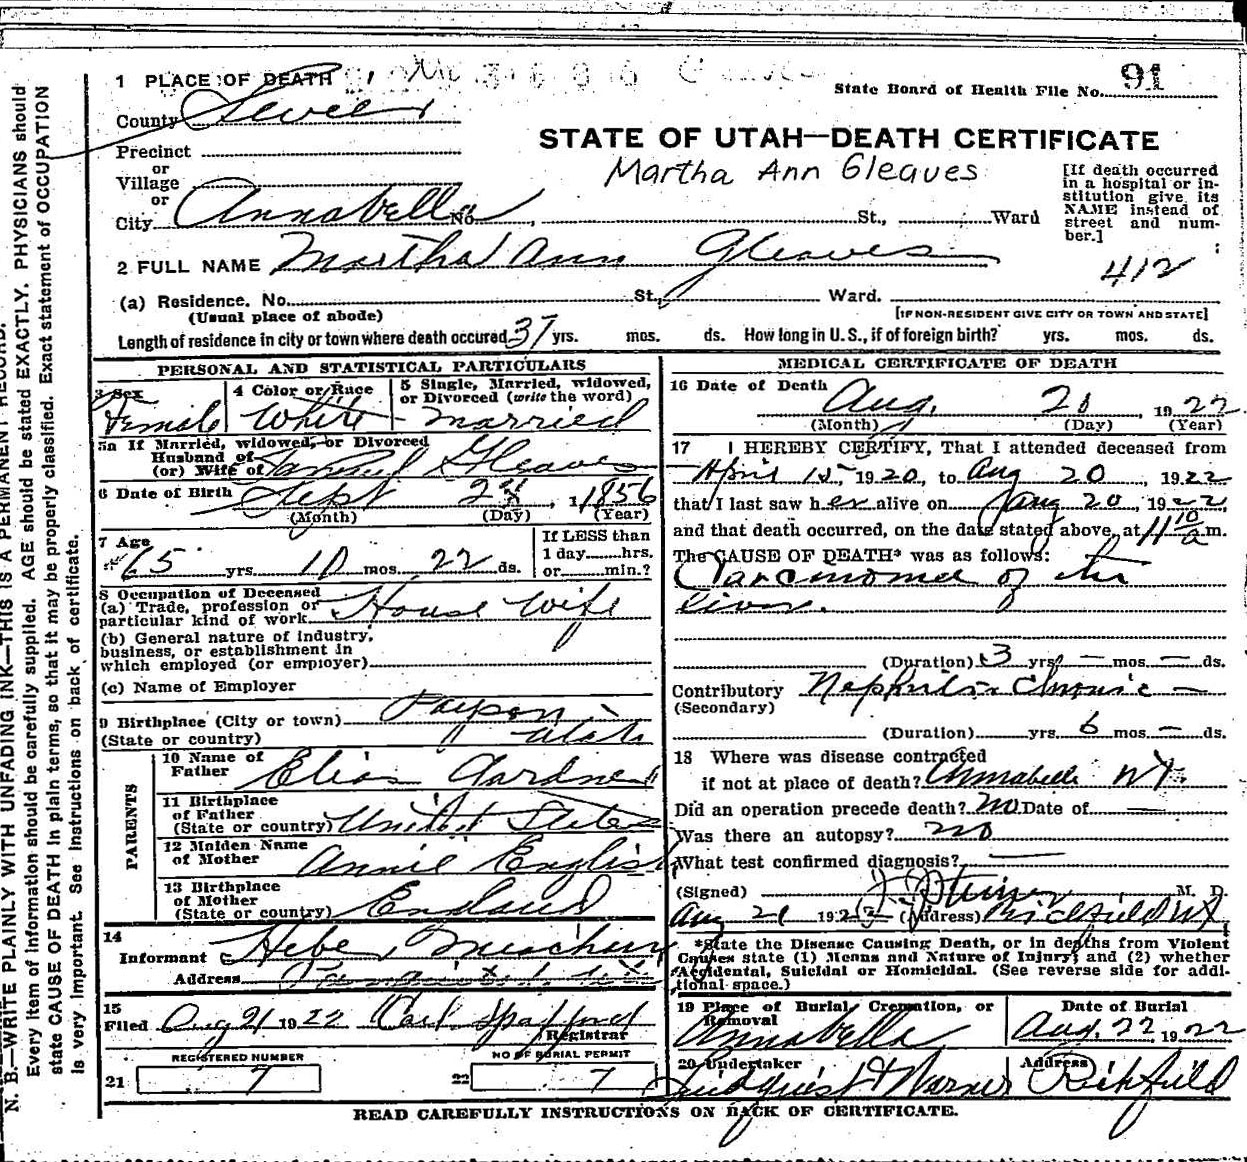 1 PLACE OF DEATH
State Board of Health File No. 91
County Sevier
STATE OF UTAH—DEATH CERTIFICATE
Precinct
or
Village
or
Martha Ann Gleaves
[If death occurred
in a hospital or in-
stitution give its
NAME instead of
street and num-
ber.]
City Annabella No. , St., Ward
2 FULL NAME Martha Ann Gleaves
412
(a) Residence. No. St., Ward.
(Usual place of abode) [IF NON-RESIDENT GIVE CITY OR TOWN AND STATE]
Length of residence in city or town where death occured 37 yrs. mos. ds. How long in U.S., if of foreign birth? yrs. mos. ds.
PERSONAL AND STATISTICAL PARTICULARS
3 Sex
Female
4 Color or Race
White
5 Single, Married, widowed,
or Divorced (write the word)
Married
5a If Married, widowed, or Divorced
Husband of
(or) Wife of Gleaves
6 Date of Birth Sept 1856
(Month) (Day) (Year)
7 Age
65 yrs. 10 mos. 22 ds.
If LESS than
1 day hrs.
or min.?
8 Occupation of Deceased
(a) Trade, profession or
particular kind of work House wife
(b) General nature of industry,
business, or establishment in
which employed (or employer)
(c) Name of Employer
9 Birthplace (City or town) Payson
(State or country) Utah
PARENTS
10 Name of
Father Elias Gardner
11 Birthplace
of Father
(State or country) United States
12 Maiden Name
of Mother Annie English
13 Birthplace
of Mother
(State or country) England
14
Informant Heber
Address
15
Filed Aug 21 1922 Carl Spafford
Registrar
REGISTERED NUMBER
21 7
NO OF BURIAL PERMIT
22 7
MEDICAL CERTIFICATE OF DEATH
16 Date of Death
Aug. 20, 1922
(Month) (Day) (Year)
17 I HEREBY CERTIFY, That I attended deceased from
April 15, 1920, to Aug 20, 1922
that I last saw her alive on Aug 20, 1922,
and that death occurred, on the date stated above, at 11 10 a m.
The CAUSE OF DEATH* was as follows:
Carcinoma of the
liver.
(Duration) 3 yrs. — mos. — ds.
Contributory Nephritis Chronic —
(Secondary)
(Duration) yrs. 6 mos. — ds.
18 Where was disease contracted
if not at place of death? Annabella Ut.
Did an operation precede death? no Date of —
Was there an autopsy? no
What test confirmed diagnosis? —
(Signed) M. D.
Aug 21 192 (Address) Richfield Ut
*State the Disease Causing Death, or in deaths from Violent
Causes state (1) Means and Nature of Injury; and (2) whether
Accidental, Suicidal or Homicidal. (See reverse side for addi-
tional space.)
19 Place of Burial, Cremation, or
Removal
Annabella
Date of Burial
Aug. 22, 1922
20 Undertaker
Lindquist & Warner
Address
Richfield
READ CAREFULLY INSTRUCTIONS ON BACK OF CERTIFICATE.
N. B.—WRITE PLAINLY WITH UNFADING INK—THIS IS A PERMANENT RECORD.
Every item of information should be carefully supplied. AGE should be stated EXACTLY. PHYSICIANS should
state CAUSE OF DEATH in plain terms, so that it may be properly classified. Exact statement of OCCUPATION
is very important. See instructions on back of certificate.